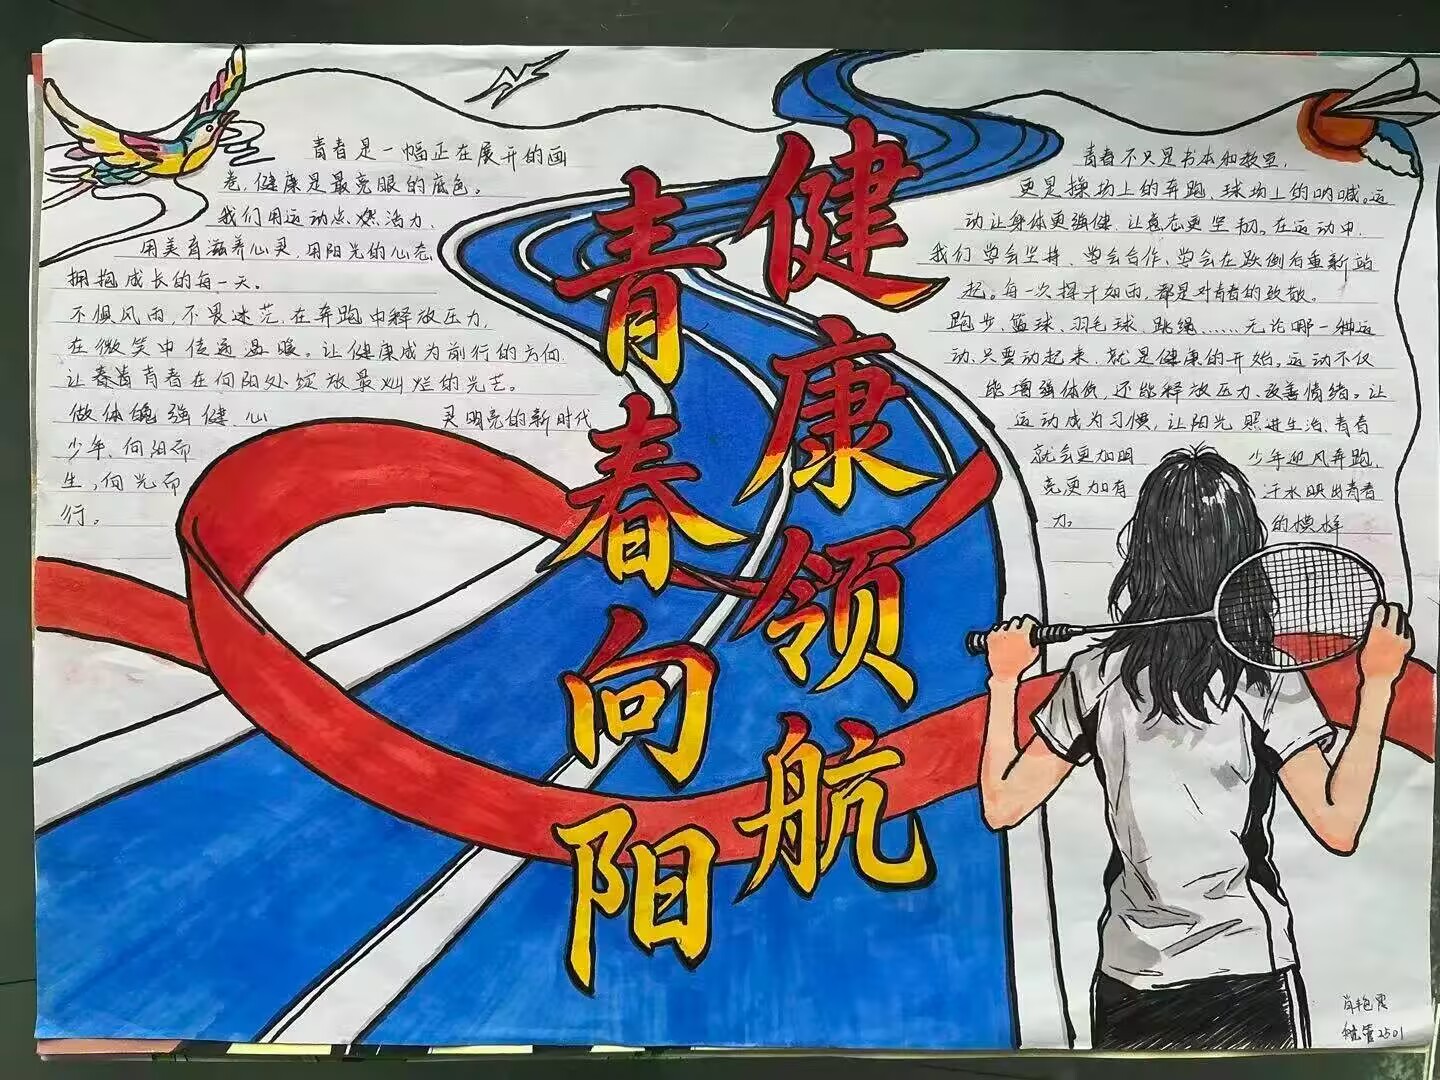 健康领航
青春向阳
青春是一幅正在展开的画
卷,健康是最亮眼的底色。
我们用运动点燃活力,
用美育滋养心灵,用阳光的心态
拥抱成长的每一天。
不惧风雨,不畏迷茫,在奔跑中释放压力,
在微笑中传递温暖。让健康成为前行的方向,
让青春在向阳处绽放最灿烂的光芒。
做体魄强健、心灵明亮的新时代
少年,向阳而
生,向光而
行。
青春不只是书本和教室,
更是操场上的奔跑、球场上的呐喊。运
动让身体更强健,让意志更坚韧。在运动中,
我们学会坚持、学会合作、学会在跌倒后重新站
起。每一次挥汗如雨,都是对青春的致敬。
跑步、篮球、羽毛球、跳绳……无论哪一种运
动,只要动起来,就是健康的开始。运动不仅
能增强体质,还能释放压力、改善情绪。让
运动成为习惯,让阳光照进生活,青春
就会更加明
亮更加有
力。
少年迎风奔跑,
汗水映出青春
的模样
2501